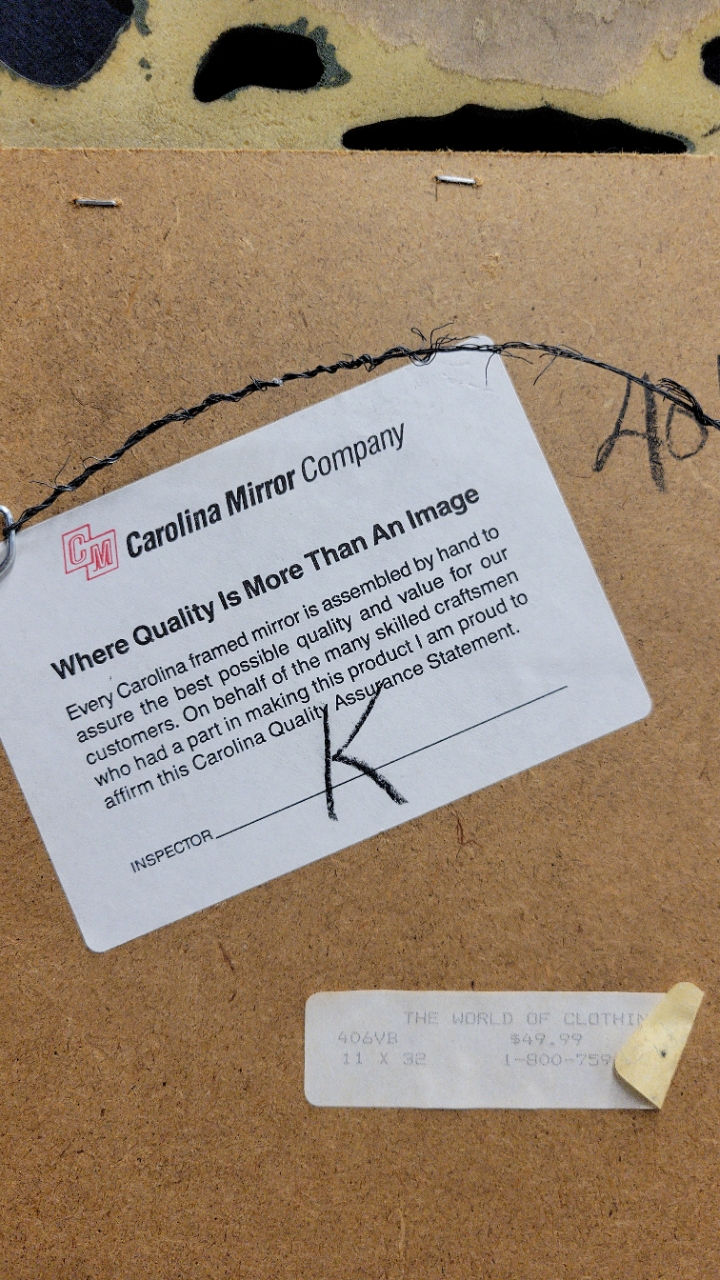 40
CM Carolina Mirror Company
Where Quality Is More Than An Image
Every Carolina framed mirror is assembled by hand to
assure the best possible quality and value for our
customers. On behalf of the many skilled craftsmen
who had a part in making this product I am proud to
affirm this Carolina Quality Assurance Statement.
K
INSPECTOR
THE WORLD OF CLOTHIN
406VB $49.99
11 X 32 1-800-759